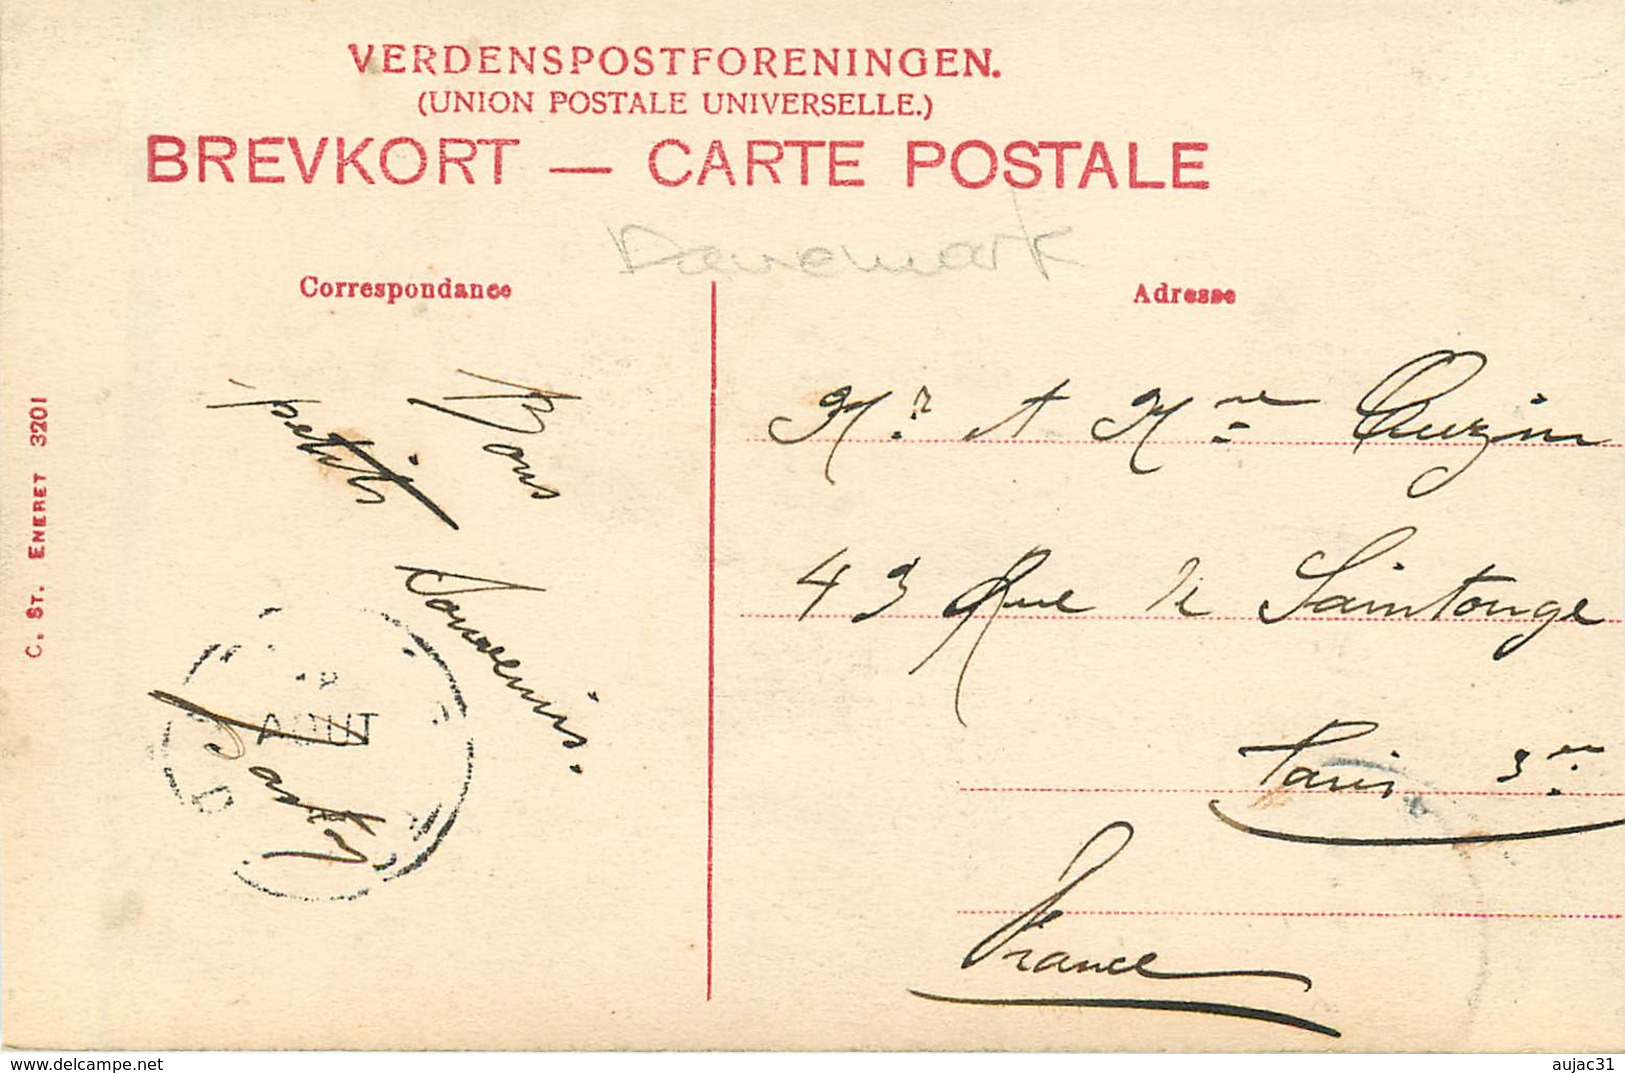 VERDENSPOSTFORENINGEN.
(UNION POSTALE UNIVERSELLE.)
BREVKORT — CARTE POSTALE
Danemark
Correspondance
Adresse
Bons
petits
Souvenirs.
AOUT
Mr et Mme
43 Rue de Saintonge
Paris 3me
France
C. ST. ENERET 3201
www.delcampe.net
aujac31